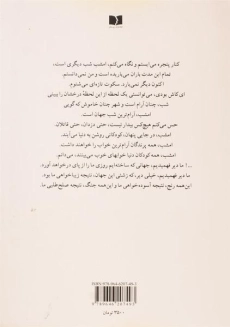 کنار پنجره می‌ایستم و نگاه می‌کنم، امشب شب دیگری است،
تمام این مدت باران می‌باریده است و من نمی‌دانستم
اکنون دیگر نمی‌بارد. سکوت تازه‌ای می‌شنوم
ای‌کاش بودی، می‌توانستی یک لحظه از این لحظهٔ درخشان را ببینی
شب، چنان آرام است و شهر چنان خاموش که گویی
امشب، آرام‌ترین شب جهان است.
حس می‌کنم هیچ‌کس بیدار نیست، حتی دزدان، حتی قاتلان.
امشب، در جایی پنهان، کودکانی روشن به دنیا می‌آیند.
امشب، همه پرندگان آرام‌ترین خواب را خواهند داشت.
امشب، همه کودکان دنیا خوابهای خوب می‌بینند، می‌دانم.
...ما دیر فهمیدیم، جهانی که ساخته‌ایم روزی ما را از پای درخواهد آورد.
ما دیر فهمیدیم، خیلی دیر، که زشتی این جهان، نتیجه زیباخواهی ما بود.
این همه رنج، نتیجه آسوده‌خواهی ما و این همه جنگ، نتیجه صلح‌طلبی ما.
۳۵۰۰ تومان